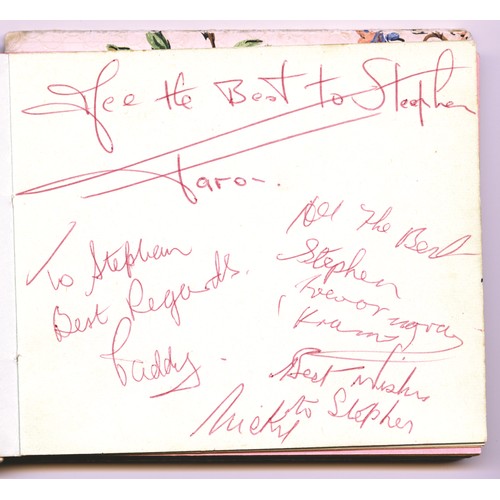 All the Best to Stephen
Taro
To Stephen
Best Regards.
Paddy.
All The Best
Stephen
Trevor
(Kramj)
Best Wishes
to Stephen
Nicky